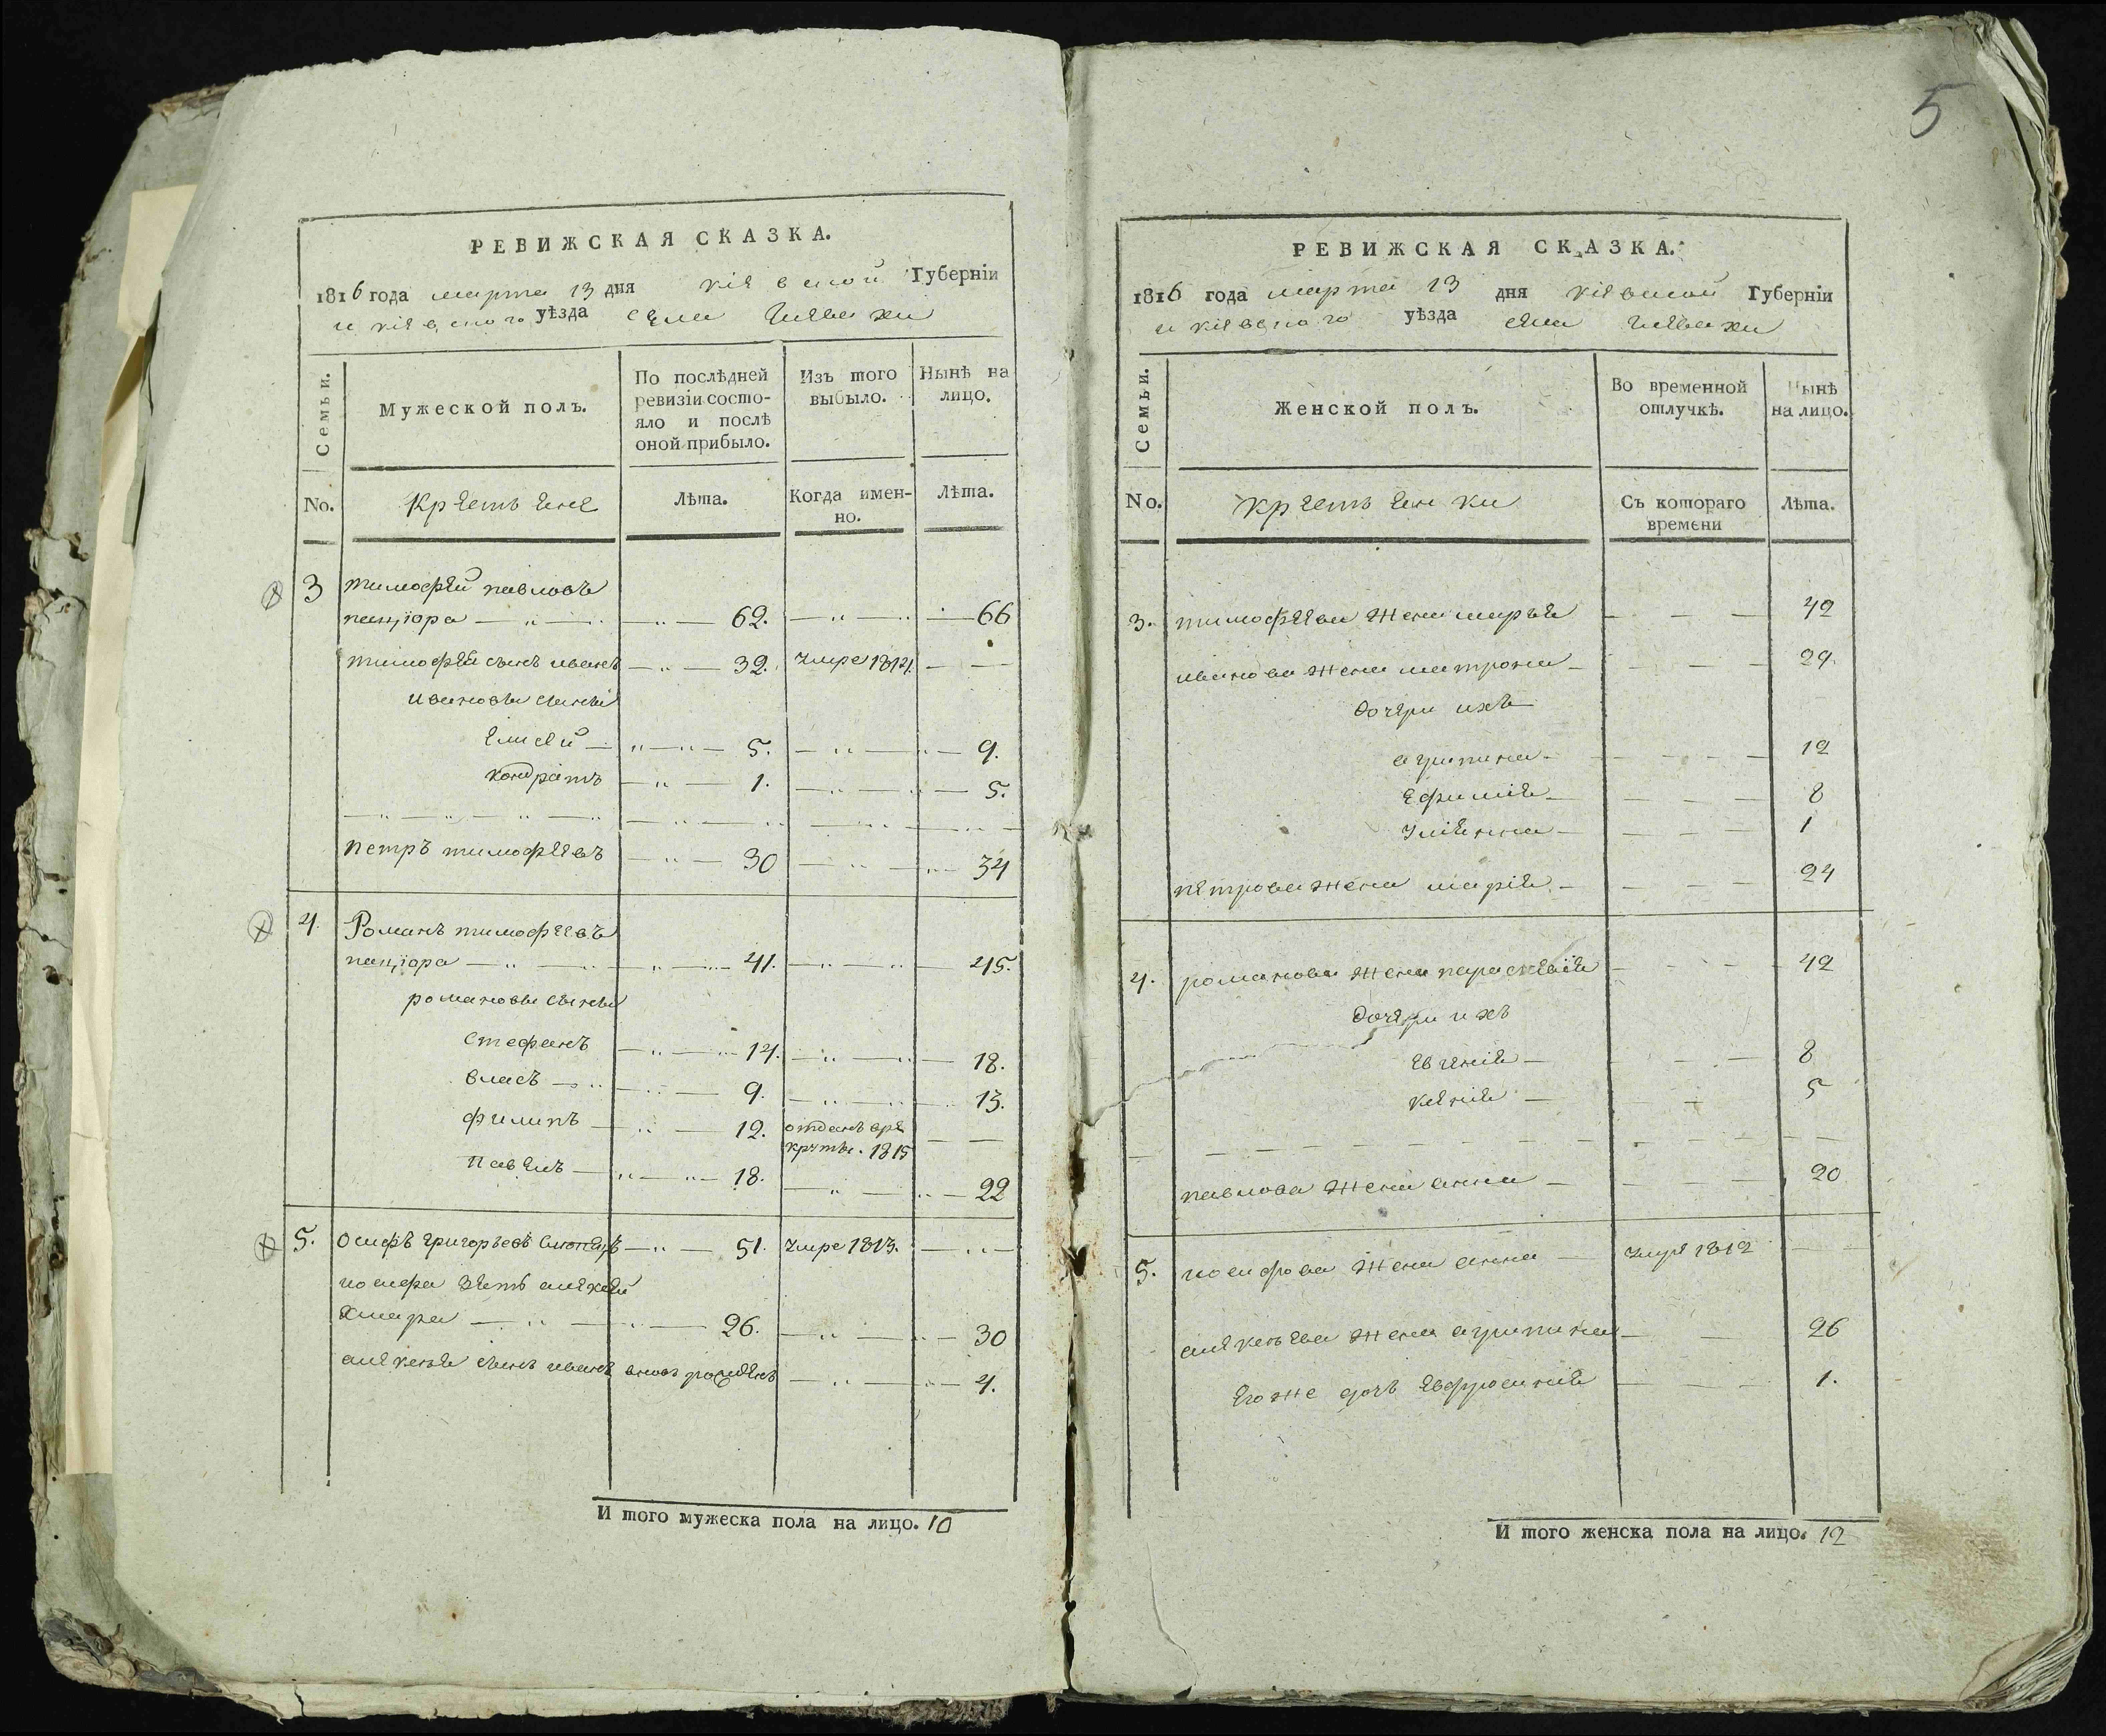 5
РЕВИЖСКАЯ СКАЗКА.
1816 года марта 13 дня кіевской Губерніи
и кіевского уѣзда села
Семьи.
Мужеской полъ.
По послѣдней ревизіи состояло и послѣ оной прибыло.
Изъ того выбыло.
Нынѣ на лицо.
No.
Крестьяне
Лѣта.
Когда имен-
но.
Лѣта.
3 тимофей павловъ
пацюра 62. 66
тимофея сынъ иванъ 32. умре 1814.
ивановы сыновья
Елисей 5. 9.
кондратъ 1. 5.
петръ тимофеевъ 30 34
4. Романъ тимофеевъ
пацюра 41. 45.
романовы сыновья
стефанъ 14. 18.
власъ 9. 13.
филипъ 12. отданъ вре
круты. 1815
павелъ 18. 22
5. осифъ григорьевъ 51. умре 1813.
иосифа зять алексей
хмара 26. 30
алексея сынъ иванъ вновь рожденъ 4.
И того мужеска пола на лицо. 10
РЕВИЖСКАЯ СКАЗКА.
1816 года марта 13 дня кіевской Губерніи
и кіевского уѣзда села
Семьи.
Женской полъ.
Во временной отлучкѣ.
Нынѣ на лицо.
No.
крестьянки
Съ котораго
времени
Лѣта.
3. тимофеева жена марья 42
иванова жена матрона 29.
дочери ихъ
агрипина 12
Ефимія 8
уліянна 1
петрова жена марія 24
4. романова жена параскевія 42
дочери ихъ
евгенія 8
ксенія 5
павлова жена анна 20
5. иосифова жена анна умре 1812
алексеева жена агрипина 26
Его же дочь евфросинія 1.
И того женска пола на лицо. 12